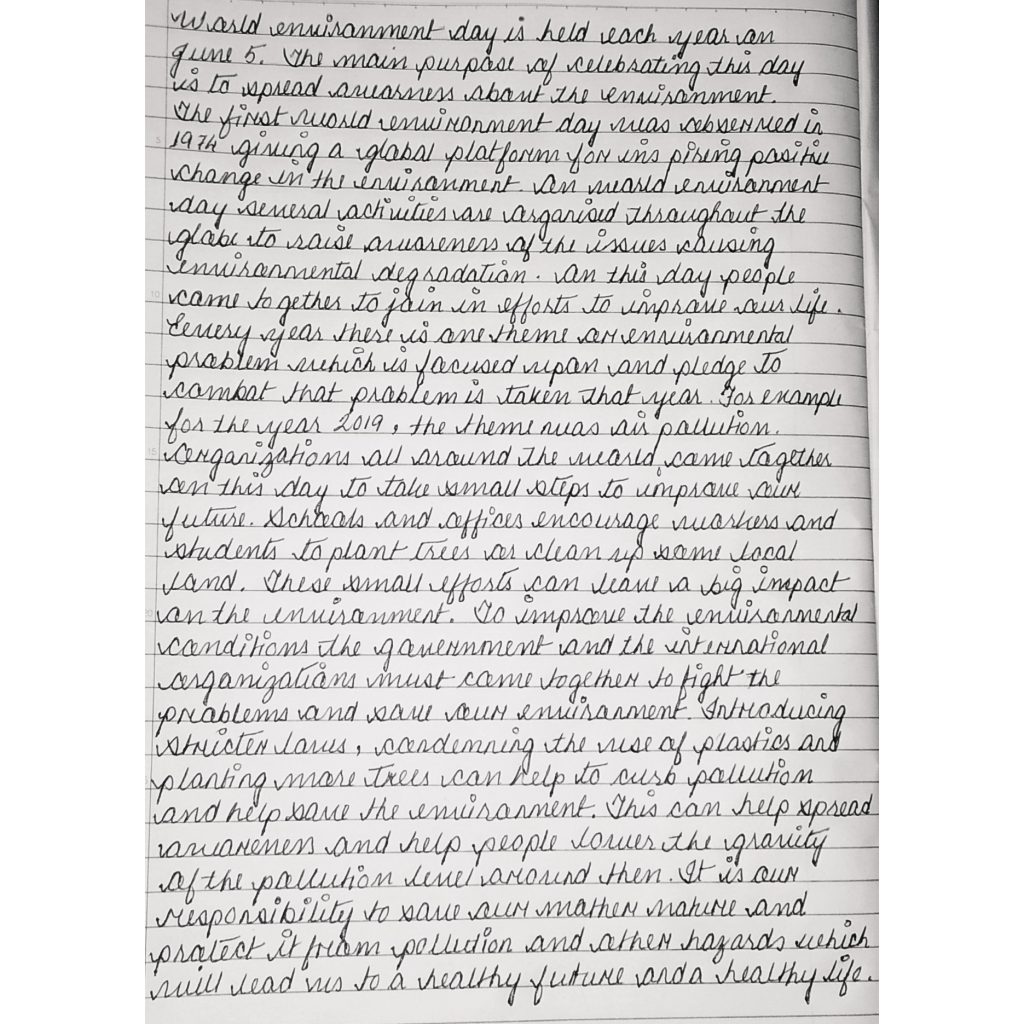 World environment day is held each year on
June 5. The main purpose of celebrating this day
is to spread awarness about the environment.
The first world environment day was observed in
1974 giving a global platform for ins piring positive
change in the environment. On world environment
day several activities are organised throughout the
globe to raise awareness of the issues causing
environmental degradation. On this day people
come together to join in efforts to improve our life.
Every year there is one theme or environmental
problem which is focused upon and pledge to
combat that problem is taken that year. For example
for the year 2019, the theme was air pollution.
Organizations all around the world come together
on this day to take small steps to improve our
future. Schools and offices encourage workers and
students to plant trees or clean up some local
land. These small efforts can leave a big impact
on the environment. To improve the environmental
conditions the government and the international
organizations must come together to fight the
problems and save our environment. Introducing
stricter laws, condemning the use of plastics and
planting more trees can help to curb pollution
and help save the environment. This can help spread
awareness and help people lower the gravity
of the pollution level around then. It is our
responsibility to save our mother nature and
protect it from pollution and other hazards which
will lead us to a healthy future and a healthy life.